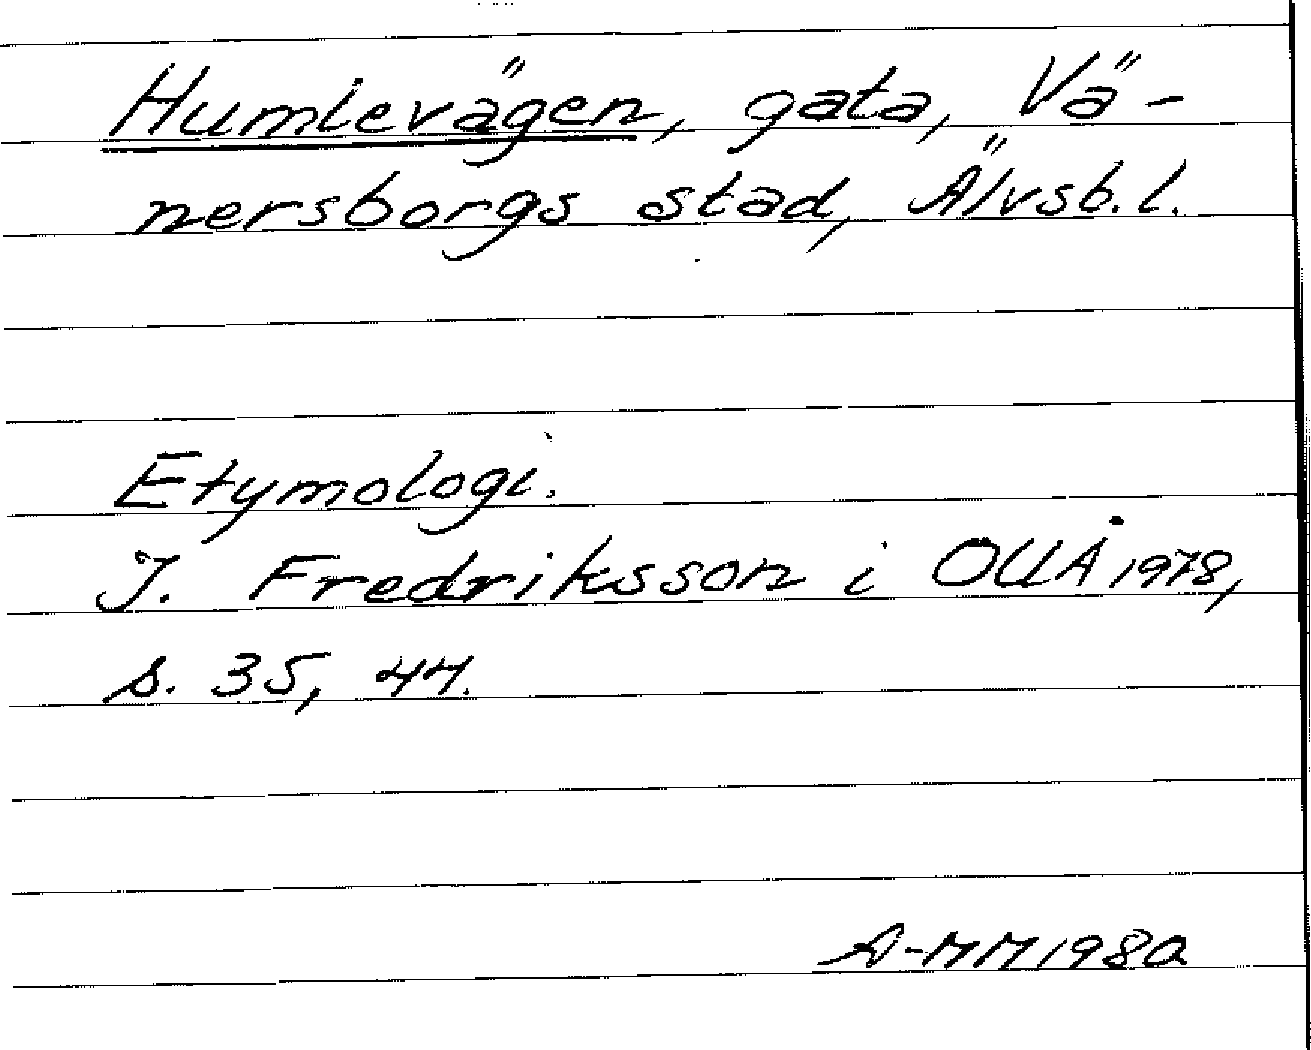 Humlevägen, gata, Vä-
nersborgs stad, Älvsb. l.
Etymologi.
I. Fredriksson i OUÅ 1978,
s. 35, 44.
A-MM 1980